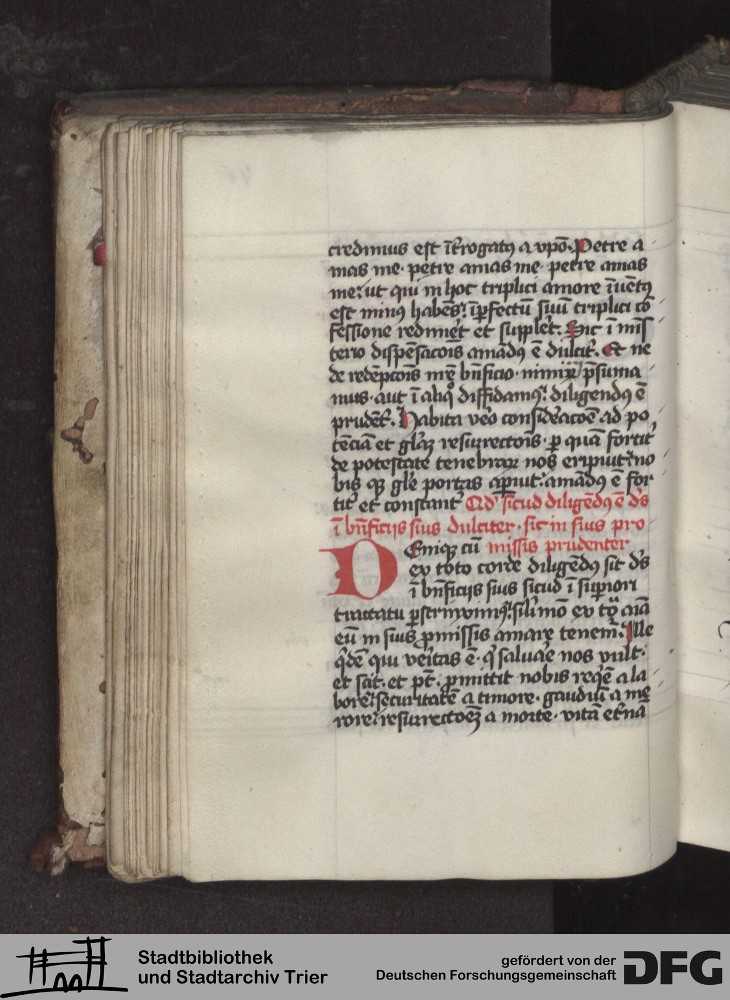 credimus est īt̄rogatꝯ a xp̄o. Petre a
mas me. petre amas me. petre amas
me: ut qui in hoc triplici amore īuētꝯ
est minꝯ habēs: īp̄fectū suū triplici cō
fessione redim̄et et suppl̄et. Sic ī mis
terio dispēsacōis amādꝯ ē dulcit̄. Et ne
de redēpcōis n̄re bn̄ficio. nimiū p̄suma
mus. aut ī aliqͦ diffidamꝯ: diligendꝯ ē
prudēt̄. Habita vero consid̄eacōe ad po
tēciā et gl̄az resurrectoīs. ꝑ quā fortit̄
de potestate tenebraꝝ nos eripiuit: no
bis qꝫ gl̄e portas ap̄iuit: amādꝯ ē for
tit̄ et constant̄ Qd̓ sicud diligēdꝯ ē d̄s
ī bn̄ficijs suis dulciter. sic in suis pro
DEniqꝫ cū missis prudenter
ex toto corde diligēdꝯ sit d̄s
ī bn̄ficijs suis sicud ī sup̄iori
tractatu p̄scrip̄simꝯ: sil̄i mō ex to aīa
eū in suis ꝓmissis amare tenem̄. Ille
qͥdē qui veritas ē. qͥ saluare nos vult.
et scit. et pt̄. ꝓmittit nobis reqͥē a la
bore: securitatē a timore. gaudiū a me
rore: resurrectoēꝫ a morte. vitā et̄nā
Stadtbibliothek
und Stadtarchiv Trier
gefördert von der
Deutschen Forschungsgemeinschaft
DFG